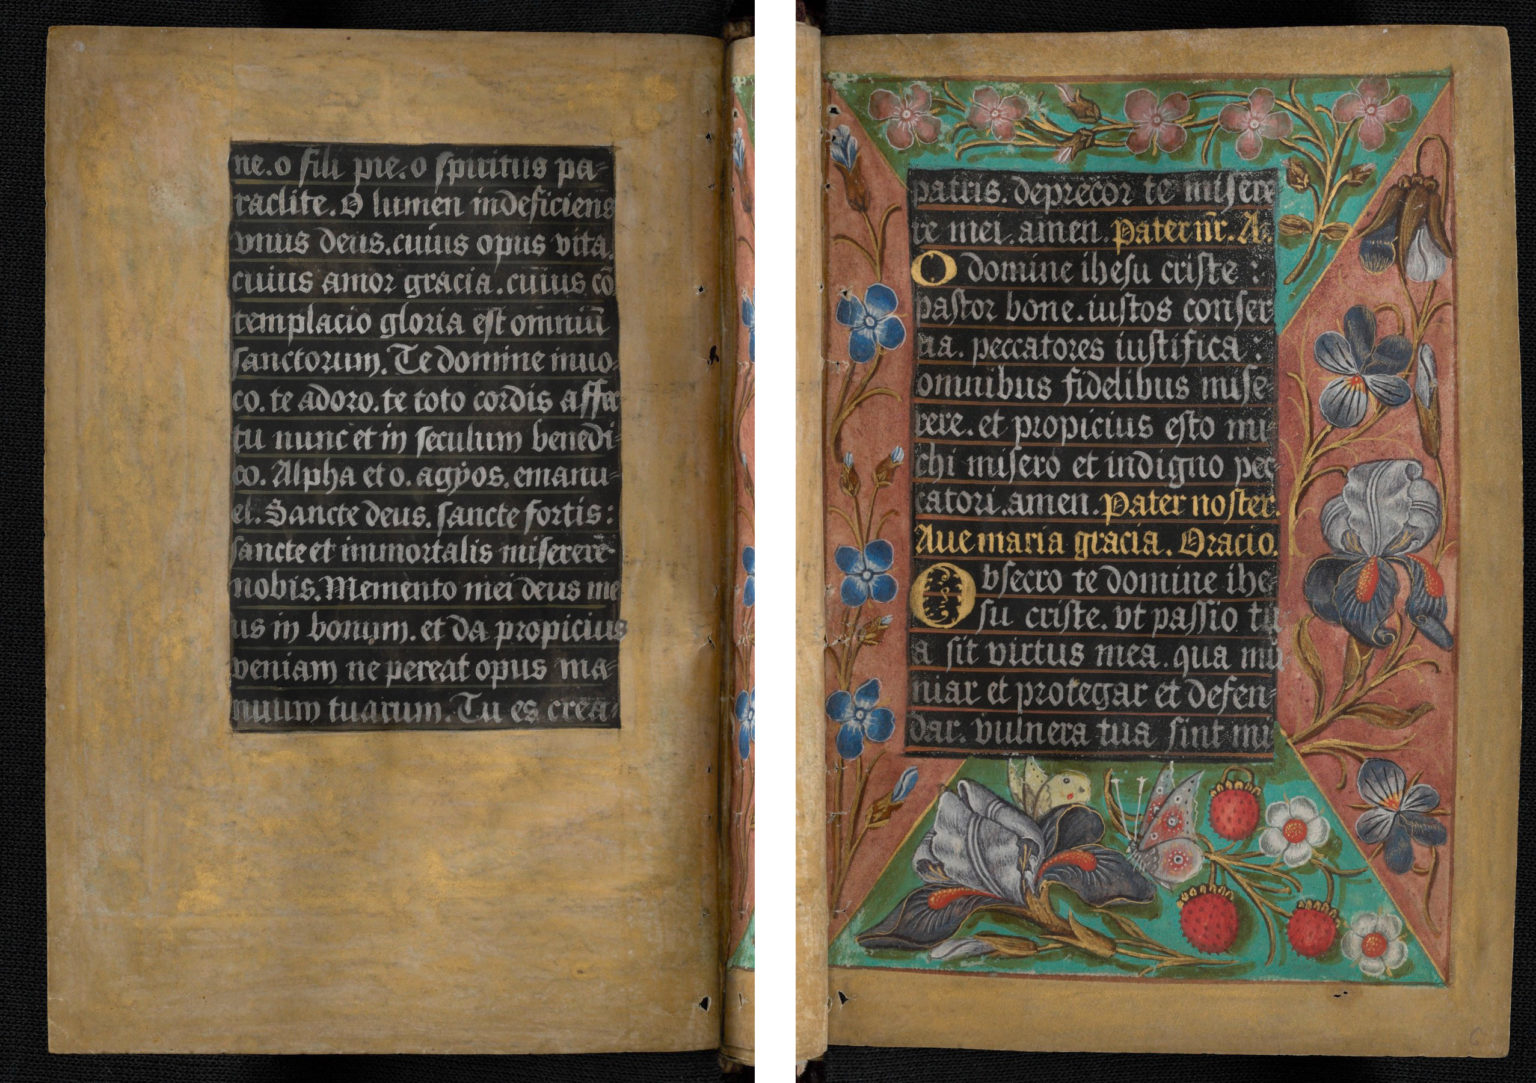 ne. o fili pie. o spiritus pa-
raclite. O lumen indeficiens
vnus deus. cuius opus vita.
cuius amor gracia. cuius cō
templacio gloria est omniū
sanctorum. Te domine inuo-
co. te adoro. te toto cordis affec
tu nunc et in seculum benedi-
co. Alpha et o. agyos. emanu-
el. Sancte deus. sancte fortis:
sancte et immortalis miserere
nobis. Memento mei deus me
us in bonum. et da propicius
veniam ne pereat opus ma-
nuum tuarum. Tu es crea-
patris. deprecor te misere
re mei. amen. Pater nr̄. A.
O domine ihesu criste:
pastor bone. iustos conser
ua. peccatores iustifica:
omnibus fidelibus mise-
rere. et propicius esto mi-
chi misero et indigno pec-
catori. amen. Pater noster.
Aue maria gracia. Oracio.
Obsecro te domine ihe-
su criste. vt passio tu
a sit virtus mea. qua mu
niar et protegar et defen-
dar. vulnera tua sint mi